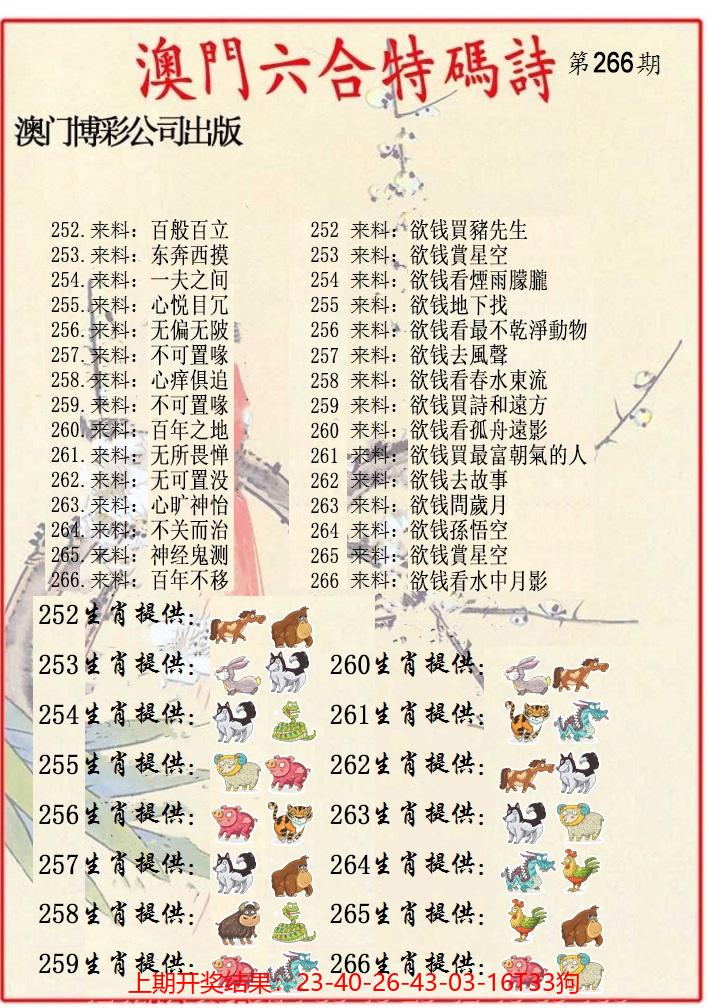 澳門六合特碼詩 第266期
澳门博彩公司出版
252.来料：百般百立
253.来料：东奔西摸
254.来料：一夫之间
255.来料：心悦目冗
256.来料：无偏无陂
257.来料：不可置喙
258.来料：心痒俱迫
259.来料：不可置喙
260.来料：百年之地
261.来料：无所畏惮
262.来料：无可置没
263.来料：心旷神怡
264.来料：不关而治
265.来料：神经鬼测
266.来料：百年不移
252 来料：欲钱買豬先生
253 来料：欲钱賞星空
254 来料：欲钱看煙雨朦朧
255 来料：欲钱地下找
256 来料：欲钱看最不乾淨動物
257 来料：欲钱去風聲
258 来料：欲钱看春水東流
259 来料：欲钱買詩和遠方
260 来料：欲钱看孤舟遠影
261 来料：欲钱買最富朝氣的人
262 来料：欲钱去故事
263 来料：欲钱問歲月
264 来料：欲钱孫悟空
265 来料：欲钱賞星空
266 来料：欲钱看水中月影
252生肖提供：
253生肖提供：
254生肖提供：
255生肖提供：
256生肖提供：
257生肖提供：
258生肖提供：
259生肖提供：
260生肖提供：
261生肖提供：
262生肖提供：
263生肖提供：
264生肖提供：
265生肖提供：
266生肖提供：
上期开奖结果：23-40-26-43-03-16T33狗